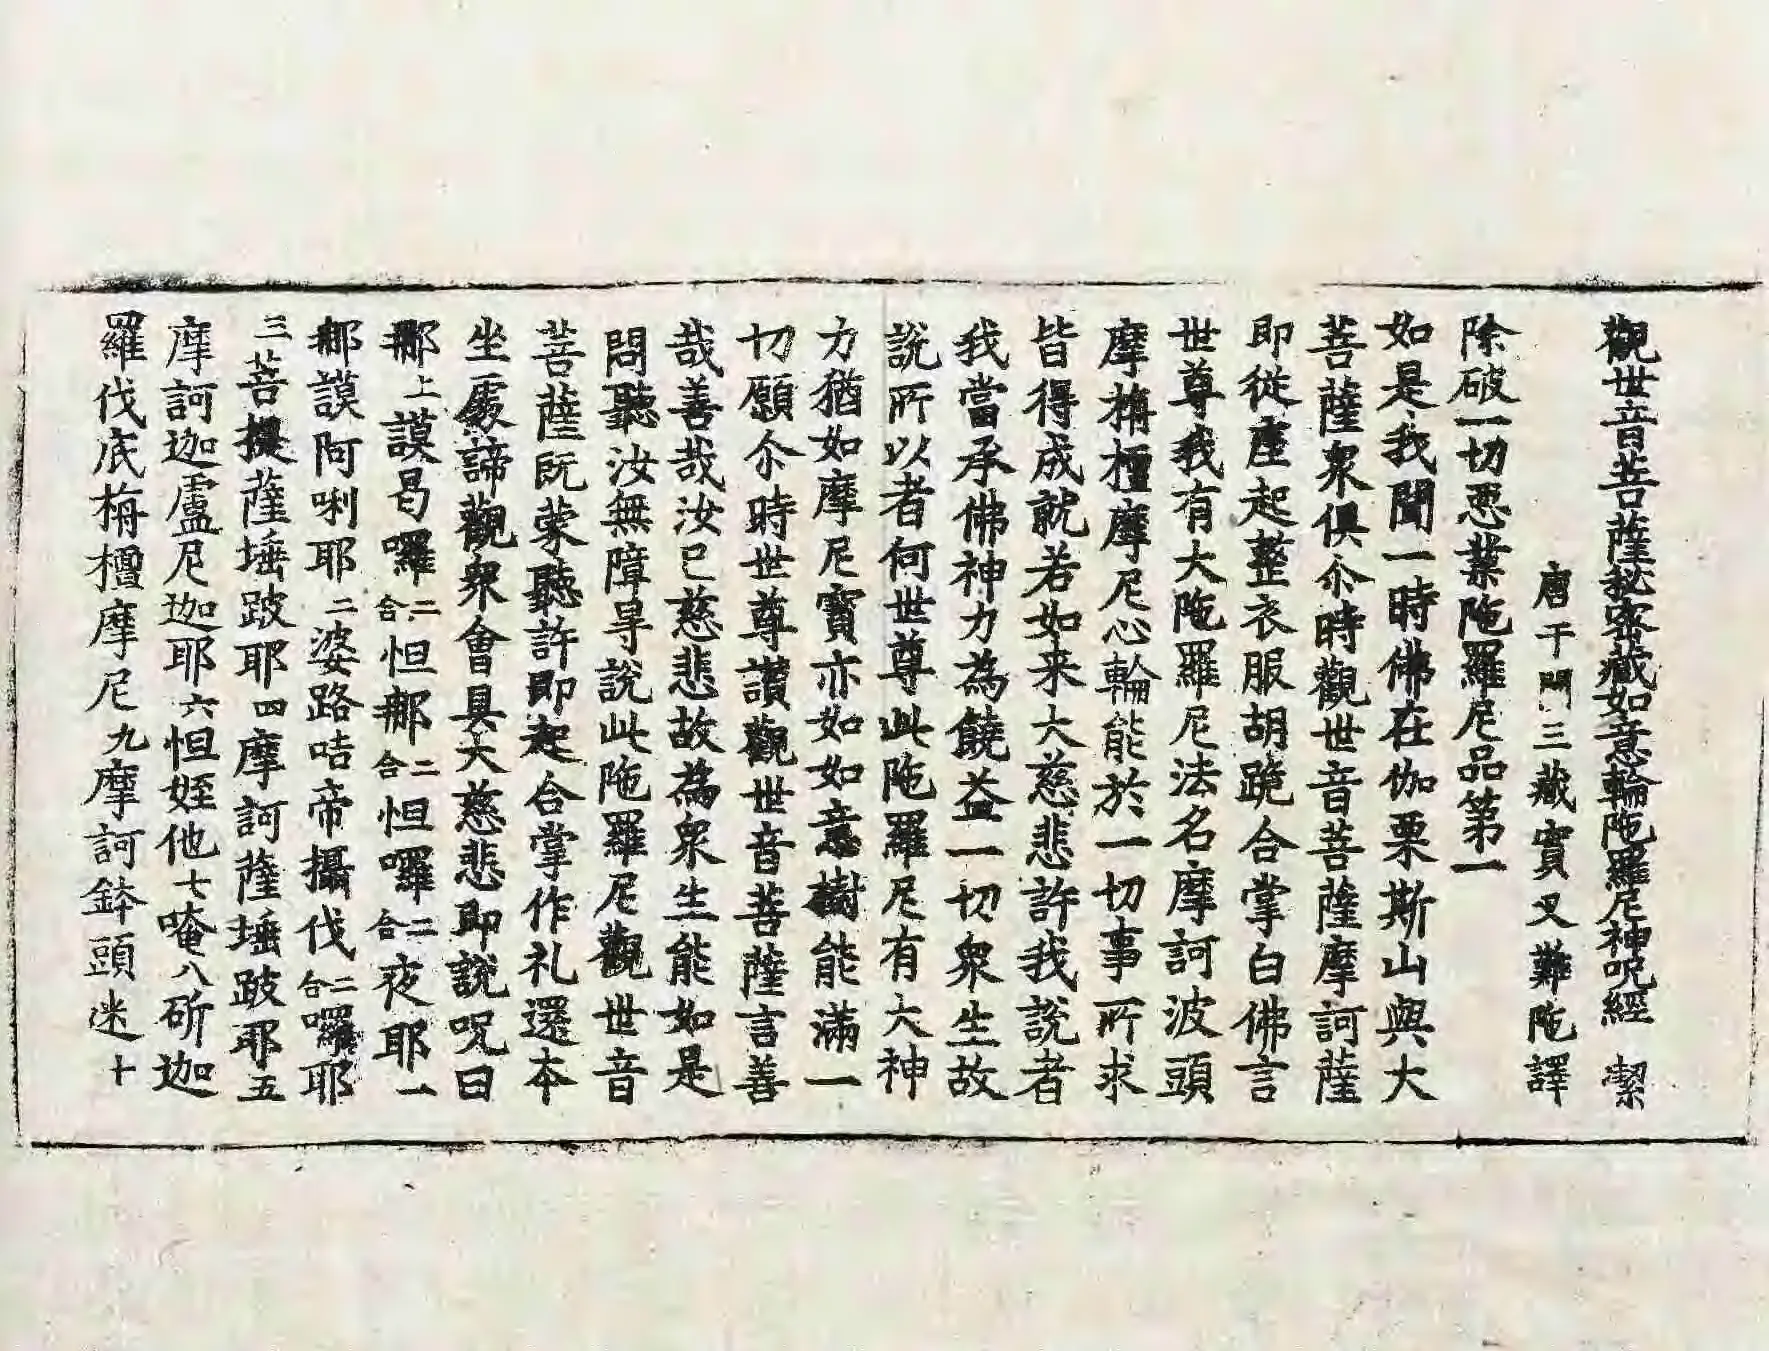 觀世音菩薩秘密藏如意輪陁羅尼神呪經 潔
唐于闐三藏實叉難陁譯
除破一切惡業陁羅尼品第一
如是我聞一時佛在伽栗斯山與大
菩薩衆俱尒時觀世音菩薩摩訶薩
即從座起整衣服胡跪合掌白佛言
世尊我有大陁羅尼法名摩訶波頭
摩栴檀摩尼心輪能於一切事所求
皆得成就若如来大慈悲許我說者
我當承佛神力為饒益一切衆生故
說所以者何世尊此陁羅尼有大神
力猶如摩尼寶亦如如意樹能滿一
切願尒時世尊讃觀世音菩薩言善
哉善哉汝已慈悲故為衆生能如是
問聽汝無障导說此陁羅尼觀世音
菩薩旣蒙聽許即起合掌作礼還本
坐處諦觀衆會具大慈悲即說呪曰
那上謨曷囉二合怛那二合怛囉二合夜耶一
那謨阿唎耶二婆路咭帝攝伐二合囉耶
三菩提薩埵跛耶四摩訶薩埵跛耶五
摩訶迦盧尼迦耶六怛姪他七唵八斫迦
羅伐底栴檀摩尼九摩訶鉢頭迷十